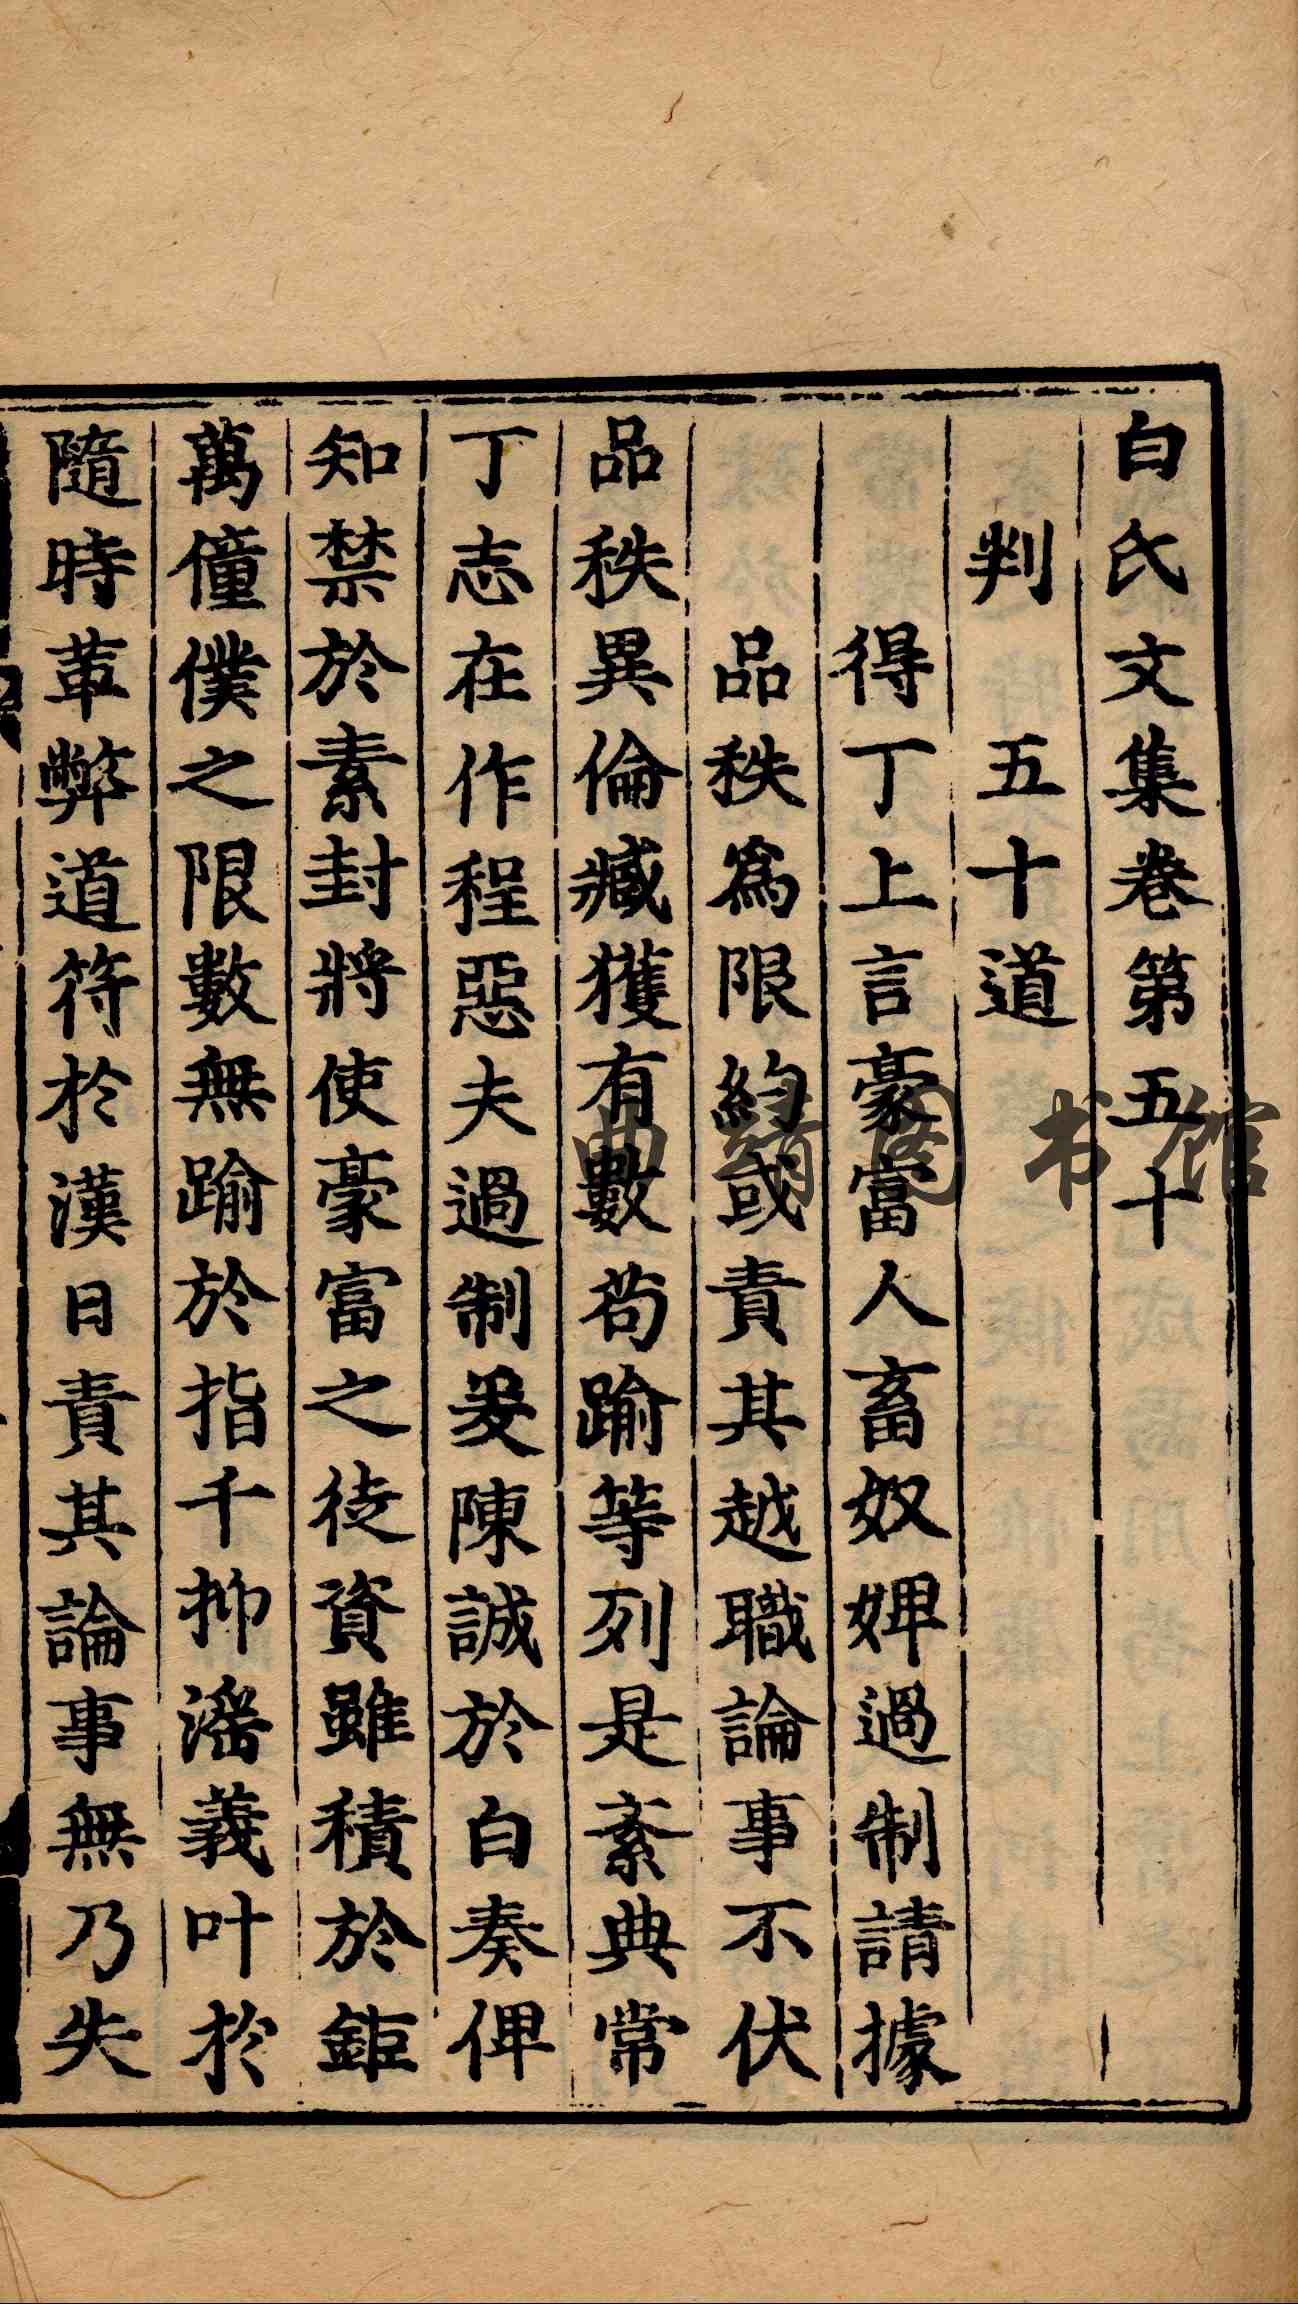 白氏文集卷第五十
判 五十道
得丁上言豪富人畜奴婢過制請據
品秩爲限約或責其越職論事不伏
品秩異倫臧獲有數苟踰等列是紊典常
丁志在作程惡夫過制爰陳誠於白奏俾
知禁於素封將使豪富之徒資雖積於鉅
萬僮僕之限數無踰於指千抑滛義叶於
隨時革弊道符於漢日責其論事無乃失
典籍图书馆